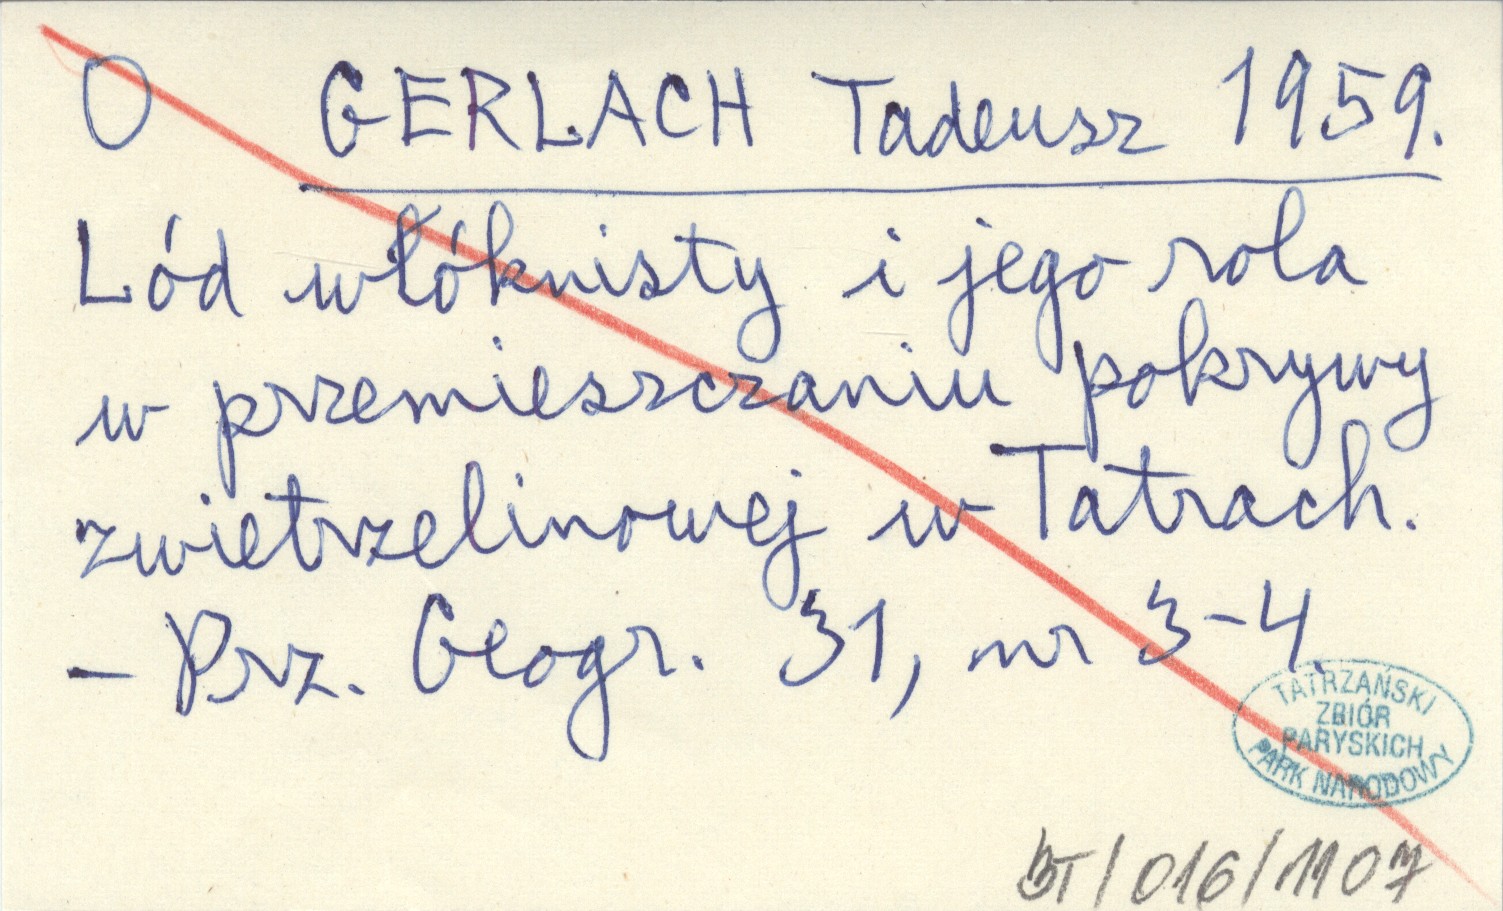 O GERLACH Tadeusz 1959.
Lód włóknisty i jego rola
w przemieszczaniu pokrywy
zwietrzelinowej w Tatrach.
- Prz. Geogr. 31, nr 3-4
TATRZAŃSKI
ZBIÓR
PARYSKICH
PARK NARODOWY
/016/1107